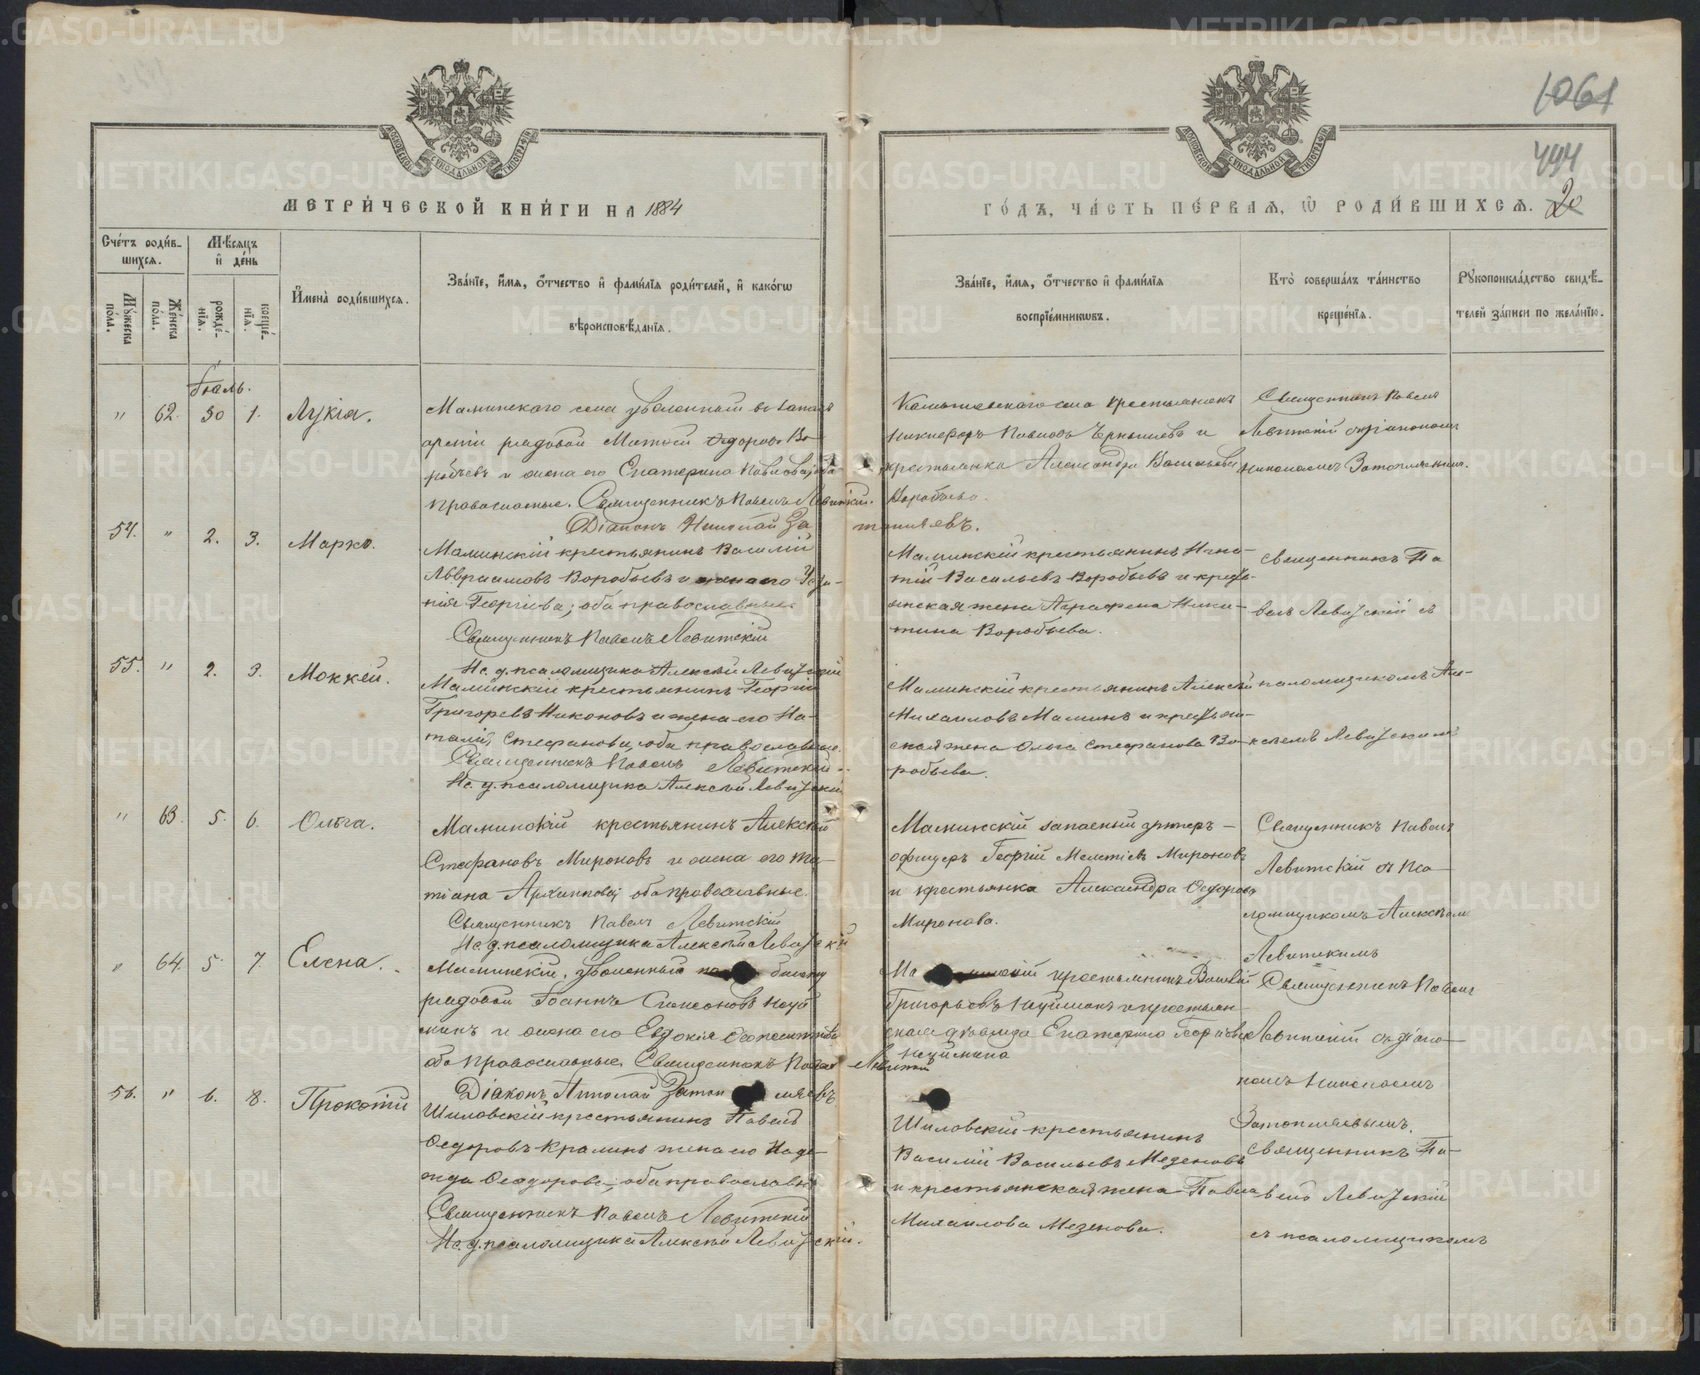 1061
494
20
МЕТРИ́ЧЕСКОЙ КНИ́ГИ НА 1884
ГО́ДЪ, ЧА́СТЬ ПЕ́РВАЯ, Ѡ҆ РОДИ́ВШИХСЯ.
Сче́тъ роди́в-
шихся.
Мꙋ́жеска
по́ла.
Же́нска
по́ла.
Мѣ́сяцъ
и҆ де́нь
рожде́-
нїя.
креще́-
нїя.
И҆мена̀ роди́вшихся.
Зва́нїе, и҆́мя, ѻ҆́тчество и҆ фами́лїя роди́телей, и҆ како́гѡ
вѣроисповѣ́данїя.
Зва́нїе, и҆́мя, ѻ҆́тчество и҆ фами́лїя
воспрїе́мниковъ.
Кто̀ соверша́лъ та́инство
креще́нїя.
Рꙋкоприкла́дство свидѣ́-
телей за́писи по жела́нїю.
" 62. 30 1. Лукія.
Маминскаго села уволенный въ запасъ
арміи рядовой Матвѣй Ѳедоровъ Во-
робьевъ и жена его Екатерина Павлова, оба
православные. Священникъ Павелъ Левитскій.
Діаконъ Николай За
крестьянинъ
Никифоръ Павловъ Чернышевъ и
крестьянка Александра Васильева
Воробьева.
Священникъ Павелъ
Левитскій съ діакономъ
Николаемъ Затопляевымъ.
54. " 2. 3. Марко.
Маминскій крестьянинъ Василій
Авраамовъ Воробьевъ и жена его
Георгіева; оба православные.
Священникъ Павелъ Левитскій
Ис. д. псаломщика Алексѣй Левитскій
Маминскій крестьянинъ Игна-
тій Васильевъ Воробьевъ и кресть-
янская жена Аграфена Ники-
тина Воробьева.
Священникъ Па
велъ Левитскій съ
55. " 2. 3. Моккей.
Маминскій крестьянинъ Георгій
Григорьевъ Никоновъ и жена его На-
талія Стефанова, оба православные.
Священникъ Павелъ Левитскій
Ис. д. псаломщика Алексѣй Левитскій
Маминскій крестьянинъ Алексѣй
Михаиловъ Маминъ и крестьян-
ская жена Ольга Стефанова Во-
робьева.
псаломщикомъ Але-
ксѣемъ Левитскимъ
" 63. 5. 6. Ольга.
Маминскій крестьянинъ Алексѣй
Стефановъ Мироновъ и жена его Та-
тіана Архиппова, оба православные.
Священникъ Павелъ Левитскій
Ис. д. псаломщика Алексѣй Левитскій
Маминскій запасный унтеръ-
офицеръ Георгій Мелетіевъ Мироновъ
и крестьянка Александра Ѳедорова
Миронова.
Священникъ Павелъ
Левитскій съ Пса-
ломщикомъ Алексѣемъ
Левитскимъ
" 64. 5. 7. Елена.
Маминскій, уволенный по билету
рядовой Іоаннъ Симеоновъ
и жена его Евдокія
оба православные. Священникъ Павелъ Левитскій
Діаконъ Николай Затопляевъ
крестьянинъ
Григорьевъ и крестьян-
ская дѣвица Екатерина Георгіева
Священникъ Павелъ
Левитскій съ діако-
номъ Николаемъ
Затопляевымъ.
56. " 6. 8. Прокопій
Шиловскій крестьянинъ Павелъ
Ѳедоровъ жена его Наде-
жда Ѳеодорова, оба православные
Священникъ Павелъ Левитскій
Ис. д. псаломщика Алексѣй Левитскій.
Шиловскій крестьянинъ
Василій Васильевъ Мезеновъ
и крестьянская жена
Михаилова Мезенова.
Священникъ Па-
велъ Левитскій
съ псаломщикомъ
METRIKI.GASO-URAL.RU